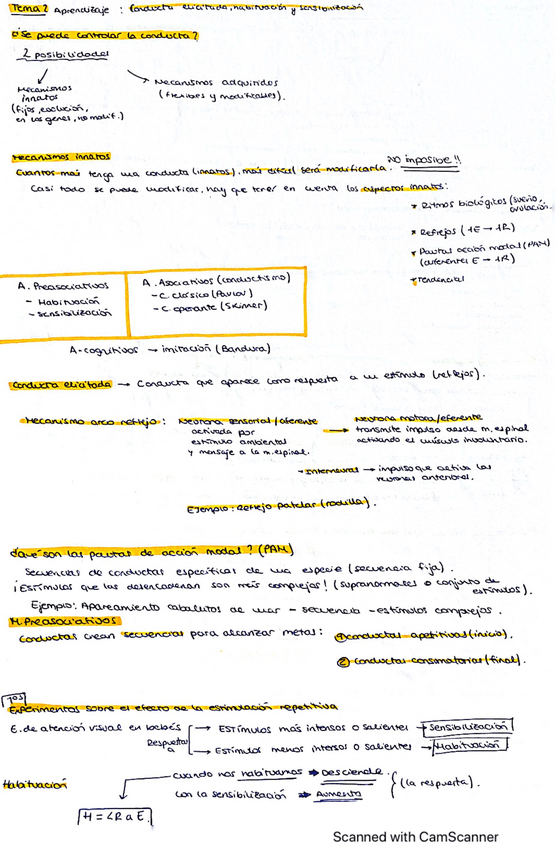 Tema 2 Aprendizaje : Conducta elicitada, habituación y sensibilización
¿Se puede controlar la conducta?
2 posibilidades
Mecanismos innatos
(fijos, evolución,
en los genes, no modif.)
Mecanismos adquiridos
(flexibles y modificables).
Mecanismos innatos
NO imposible!!
Cuantos más tenga una conducta (innatos), más difícil será modificarla.
Casi todo se puede modificar, hay que tener en cuenta los aspectos innatos:
* Ritmos biológicos (sueño, ovulación.
* Reflejos (1E → 1R)
* Pautas acción modal (PAM)
(diferentes E → 1R)
* Tendencias
A. Preasociativos
- Habituación
- Sensibilización
A. Asociativos (conductismo)
- C. Clásico (Pavlov)
- C. operante (Skinner)
A-cognitivos → imitación (Bandura)
Conducta elicitada → Conducta que aparece como respuesta a un estímulo (reflejos).
Mecanismo arco reflejo :
Neurona sensorial/aferente
activada por
estímulo ambiental
y mensaje a la m. espinal.
Neurona motora/eferente
→ transmite impulso desde m. espinal
activando el músculo involuntario.
- Interneurona → impulso que activa las
neuronas anteriores.
Ejemplo : Reflejo patelar (rodilla).
¿Qué son las pautas de acción modal? (PAM)
Secuencias de conductas específicas de una especie (secuencia fija).
¡Estímulos que las desencadenan son más complejos! (supranormales o conjunto de
estímulos).
Ejemplo: Apareamiento caballitos de mar - secuencia - estímulos complejos.
M. Preasociativos
Conductas crean secuencias para alcanzar metas:
① conductas apetitivas (inicio).
② conductas consumatorias (final).
Experimentos sobre el efecto de la estimulación repetitiva
E. de atención visual en bebés
Respuestas
a
→ Estímulos más intensos o salientes → Sensibilización
→ Estímulos menos intensos o salientes → Habituación
Habituación
cuando nos habituamos → Desciende
con la sensibilización → Aumenta
(la respuesta).
H = <R a E.
Scanned with CamScanner